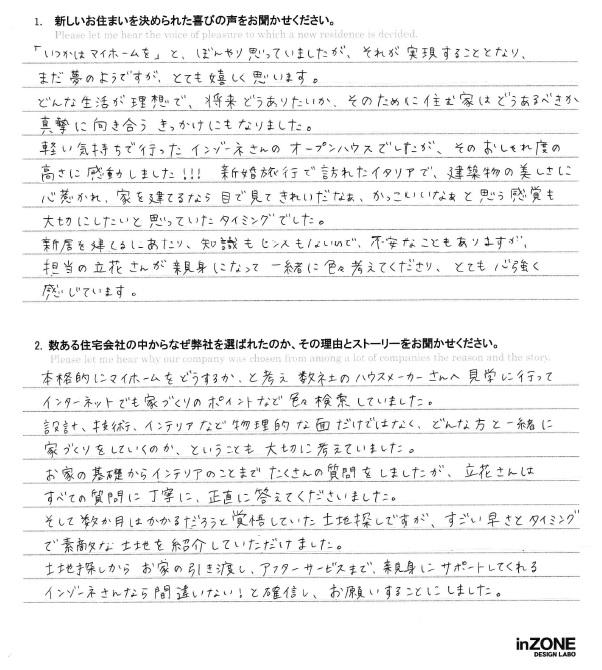 1. 新しいお住まいを決められた喜びの声をお聞かせください。
Please let me hear the voice of pleasure to which a new residence is decided.
「いつかはマイホームを」と、ぼんやり思っていましたが、それが実現することとなり、
まだ夢のようですが、とても嬉しく思います。
どんな生活が理想で、将来どうありたいか、そのために住む家はどうあるべきか
真摯に向き合うきっかけにもなりました。
軽い気持ちで行ったインゾーネさんのオープンハウスでしたが、そのおしゃれ度の
高さに感動しました!!! 新婚旅行で訪れたイタリアで、建築物の美しさに
心惹かれ、家を建てるなら目で見てきれいだなぁ、かっこいいなぁと思う感覚も
大切にしたいと思っていたタイミングでした。
新居を建てるにあたり、知識もセンスもないので、不安なこともありますが、
担当の立花さんが親身になって一緒に色々考えてくださり、とても心強く
感じています。
2. 数ある住宅会社の中からなぜ弊社を選ばれたのか、その理由とストーリーをお聞かせください。
Please let me hear why our company was chosen from among a lot of companies the reason and the story.
本格的にマイホームをどうするか、と考え 数社のハウスメーカーさんへ見学に行って
インターネットでも家づくりのポイントなど色々検索していました。
設計、技術、インテリアなど物理的な面だけではなく、どんな方と一緒に
家づくりをしていくのか、ということも大切に考えていました。
お家の基礎からインテリアのことまでたくさんの質問をしましたが、立花さんは
すべての質問に丁寧に、正直に答えてくださいました。
そして数か月はかかるだろうと覚悟していた土地探しですが、すごい早さとタイミング
で素敵な土地を紹介していただけました。
土地探しからお家の引き渡し、アフターサービスまで、親身にサポートしてくれる
インゾーネさんなら間違いない!と確信し、お願いすることにしました。
inZONE
DESIGN LABO